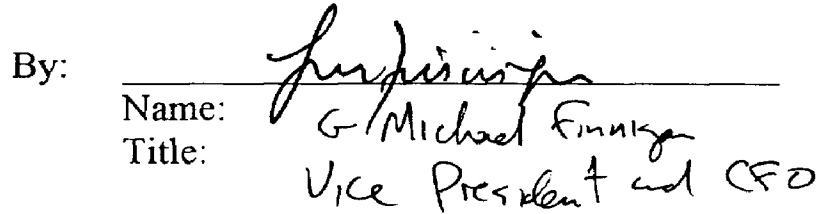 By:
Name: G Michael Finnigan
Title: Vice President and CFO